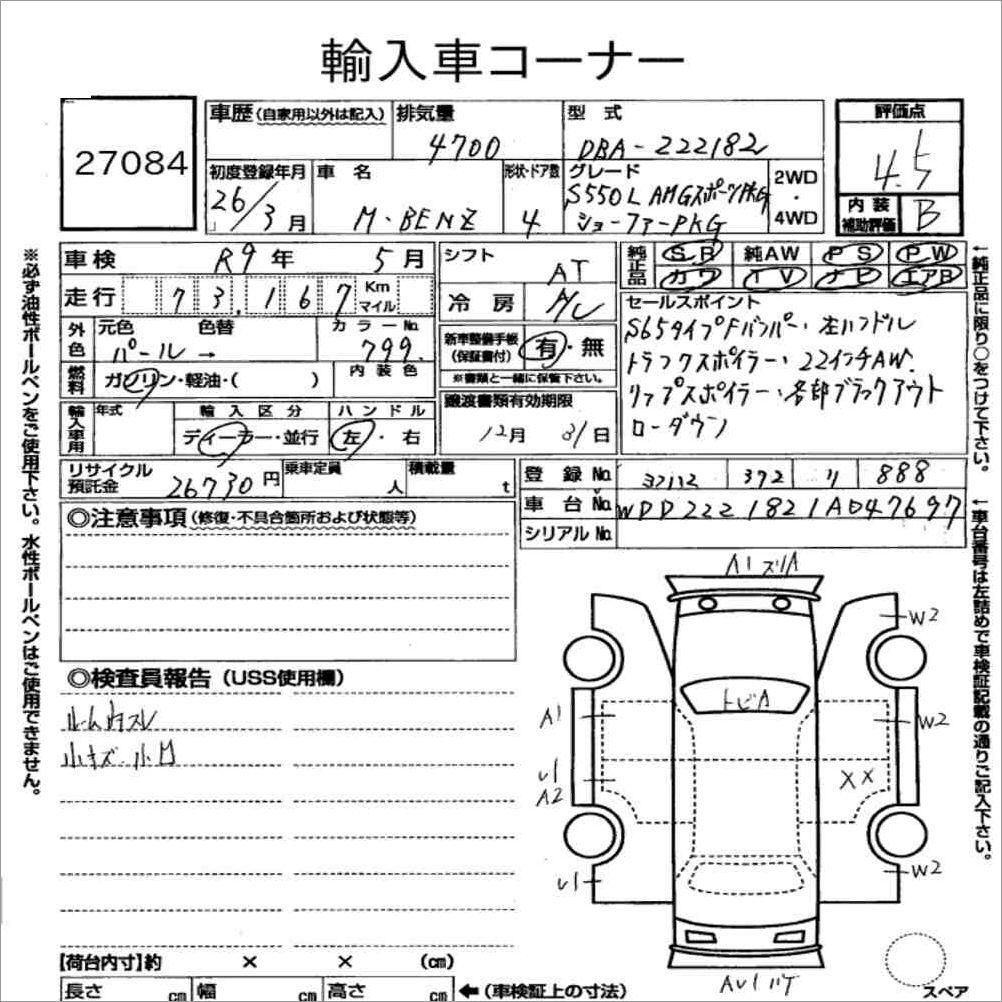 輸入車コーナー
27084
車歴 (自家用以外は記入)
排気量
4700
型式
DBA-222182
評価点
4.5
初度登録年月
26/3月
車名
M-BENZ
形状・ドア数
4
グレード
S550L AMGスポーツPKG
ショーファーPKG
2WD
・
4WD
内装
補助評価
B
車検
R9年 5月
シフト
AT
純正品
SR 純AW PS PW
カワ TV ナビ エアB
走行
73,167
Km
マイル
冷房
A/C
セールスポイント
S65タイプFバンパー・左ハンドル
トランクスポイラー・22インチAW.
リップスポイラー・各部ブラックアウト
ローダウン
外色
元色 色替
パール →
カラーNo.
799.
新車整備手帳
(保証書付)
有・無
※書類と一緒に保管下さい。
燃料
ガソリン・軽油・( )
内装色
譲渡書類有効期限
12月 31日
輸入車用
年式
輸入区分
ディーラー・並行
ハンドル
左・右
リサイクル
預託金
26730円
乗車定員
人
積載量
t
登録No.
372 リ 888
車台No.
WDD2221821A047697
シリアルNo.
◎注意事項 (修復・不具合箇所および状態等)
◎検査員報告 (USS使用欄)
ルーム内スレ
小キズ・小凹
A1 スリA
W2
トビA
A1
W2
U1
A2
XX
U1
W2
スペア
【荷台内寸】約 × × (cm)
長さ cm 幅 cm 高さ cm ←(車検証上の寸法)
※必ず油性ボールペンをご使用下さい。水性ボールペンはご使用できません。
←純正品に限り○をつけて下さい。
←車台番号は左詰めで車検証記載の通りご記入下さい。